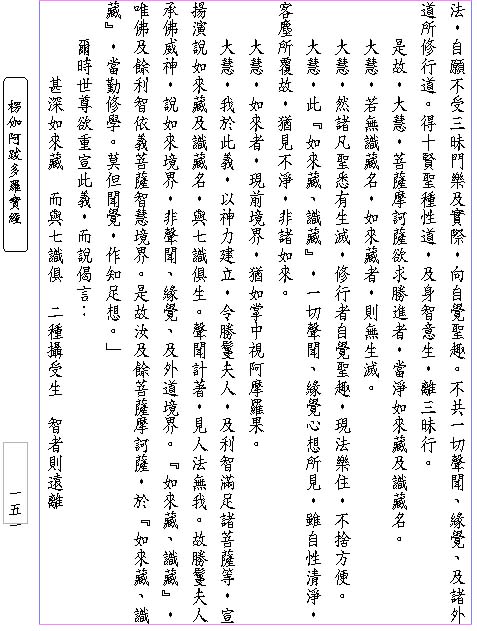 法，自願不受三昧門樂及實際，向自覺聖趣。不共一切聲聞、緣覺、及諸外
道所修行道。得十賢聖種性道，及身智意生，離三昧行。
是故，大慧，菩薩摩訶薩欲求勝進者，當淨如來藏及識藏名。
大慧，若無識藏名，如來藏者，則無生滅。
大慧，然諸凡聖悉有生滅，修行者自覺聖趣，現法樂住，不捨方便。
大慧，此『如來藏、識藏』，一切聲聞、緣覺心想所見，雖自性清淨，
客塵所覆故，猶見不淨，非諸如來。
大慧，如來者，現前境界，猶如掌中視阿摩羅果。
大慧，我於此義，以神力建立，令勝鬘夫人，及利智滿足諸菩薩等，宣
揚演說如來藏及識藏名，與七識俱生。聲聞計著，見人法無我。故勝鬘夫人
承佛威神，說如來境界，非聲聞、緣覺、及外道境界。『如來藏、識藏』，
唯佛及餘利智依義菩薩智慧境界。是故汝及餘菩薩摩訶薩，於『如來藏、識
藏』，當勤修學。莫但聞覺，作知足想。」
爾時世尊欲重宣此義，而說偈言：
甚深如來藏　而與七識俱　二種攝受生　智者則遠離
楞伽阿跋多羅寶經
一五一